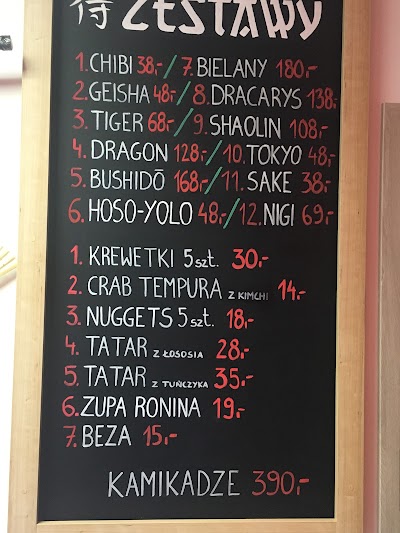 侍 ZESTAWY
1. CHIBI 38,-/7. BIELANY 180,-
2. GEISHA 48,-/8. DRACARYS 138,-
3. TIGER 68,-/9. SHAOLIN 108,-
4. DRAGON 128,-/10. TOKYO 48,-
5. BUSHIDŌ 168,-/11. SAKE 38,-
6. HOSO-YOLO 48,-/12. NIGI 69,-
1. KREWETKI 5szt. 30,-
2. CRAB TEMPURA Z KIMCHI 14,-
3. NUGGETS 5szt. 18,-
4. TATAR Z ŁOSOSIA 28,-
5. TATAR Z TUŃCZYKA 35,-
6. ZUPA RONINA 19,-
7. BEZA 15,-
KAMIKADZE 390,-